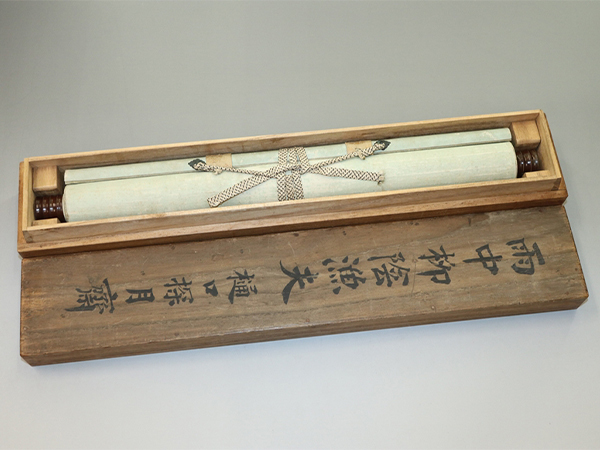 雨中柳陰漁夫樋口探月齋